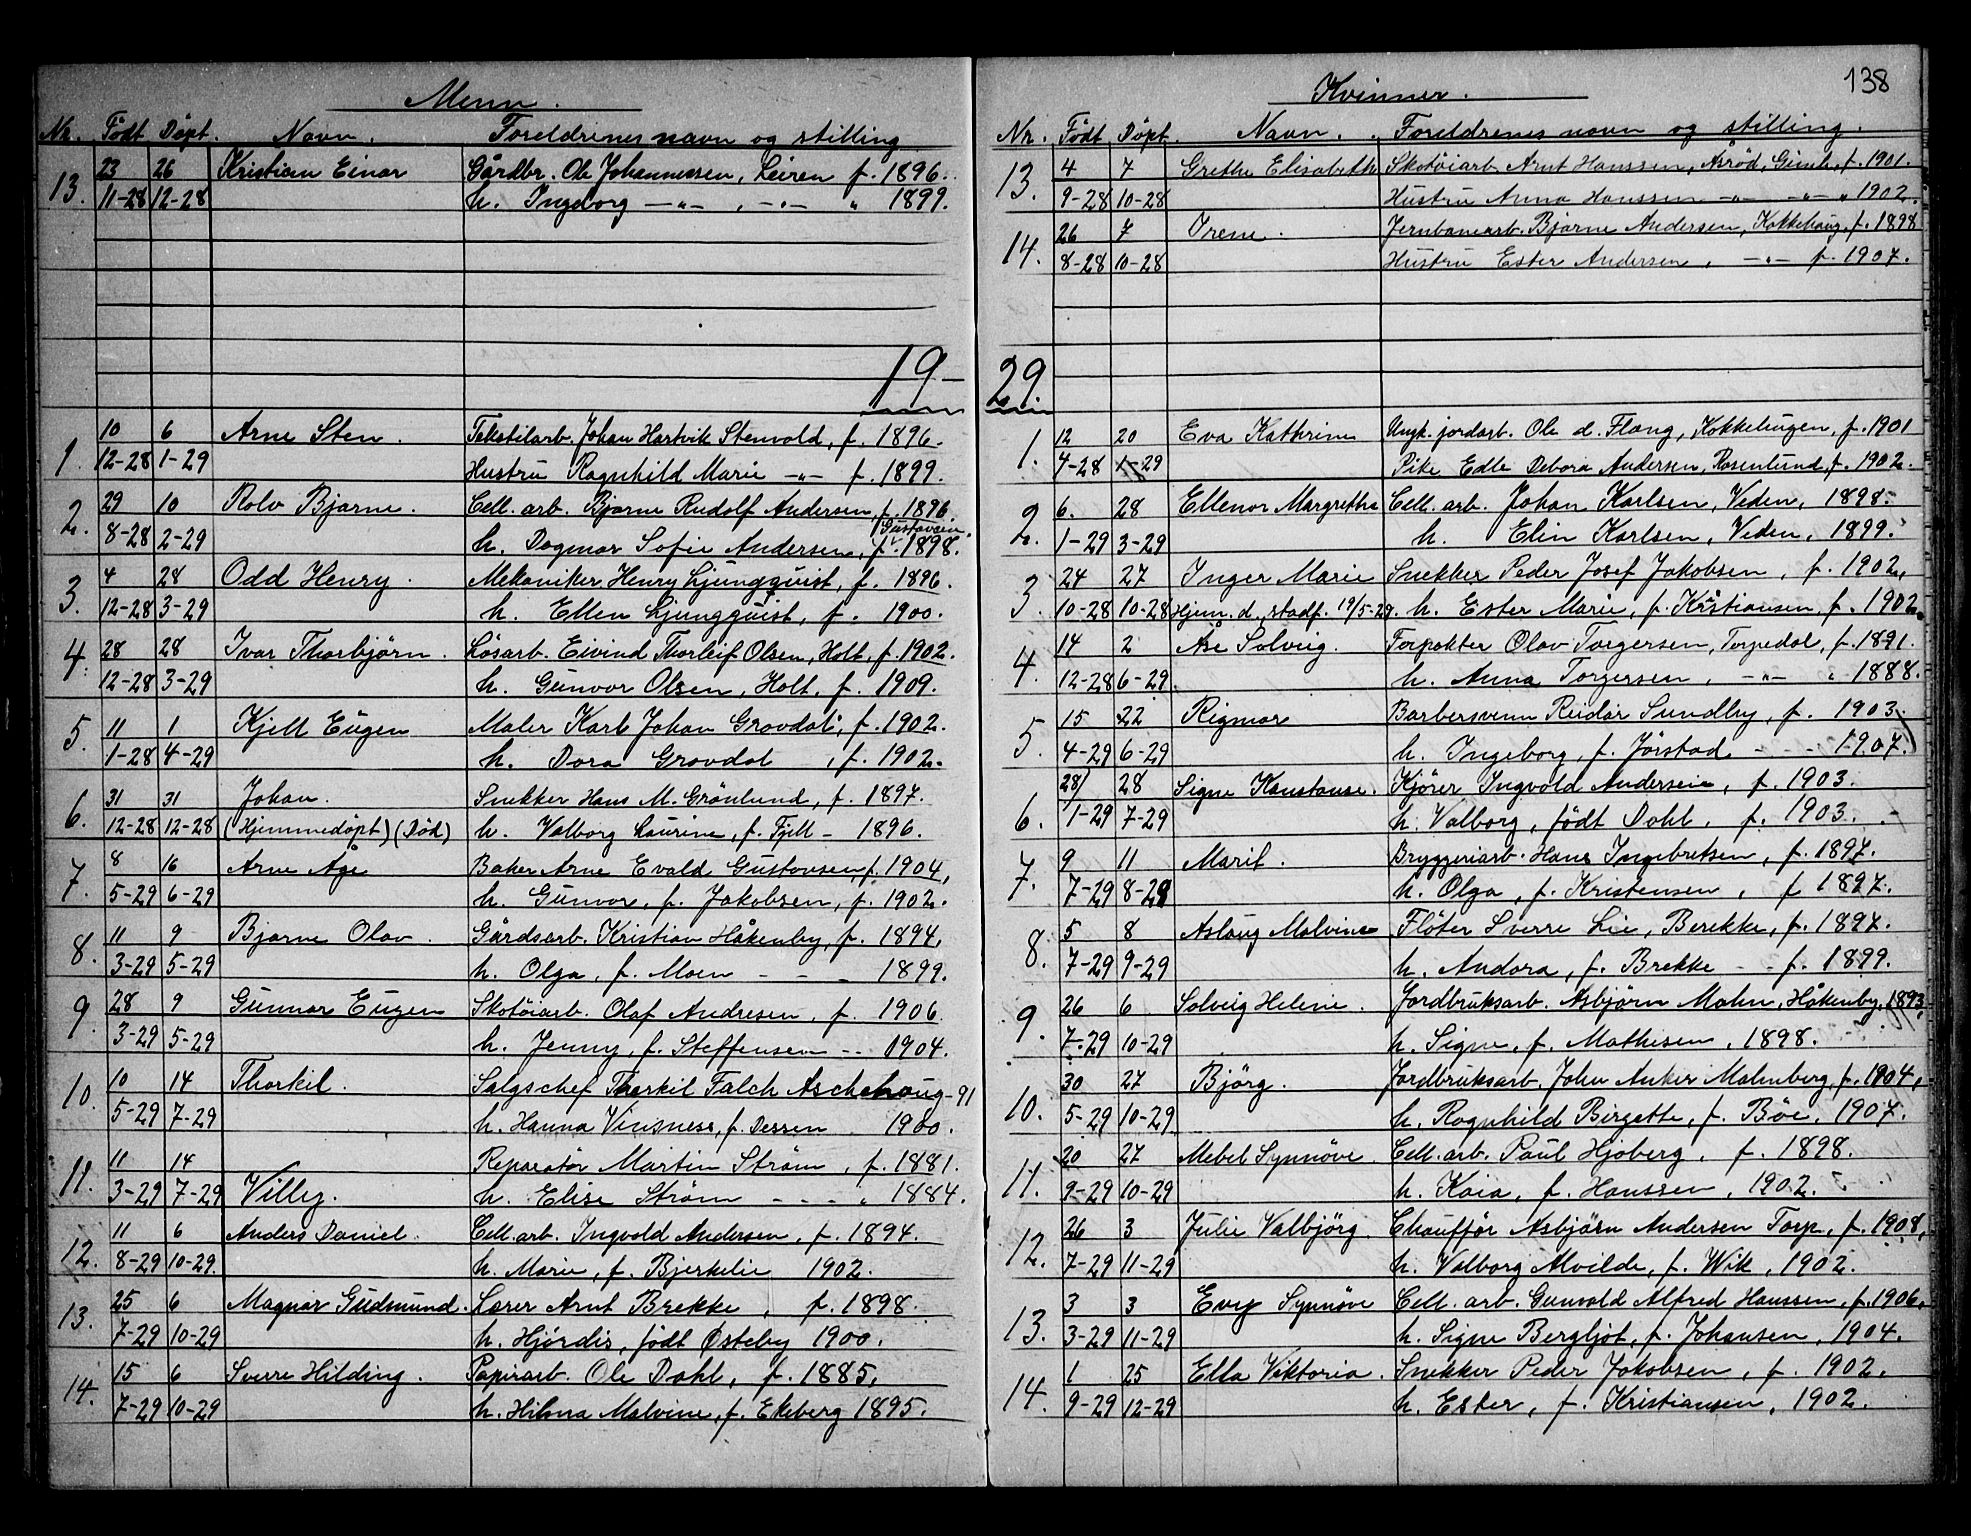 Menn.
Nr. Født Døpt. Navn. Foreldrenes navn og stilling
13. 23 26 Kristian Einar Gårdbr. Ole Johannessen, Leiren f. 1896.
11-28 12-28 h. Ingeborg -"- , -"- " 1899.
19-
1. 10 6 Arne Sten. Tekstilarb. Johan Hartvik Stenvold, f. 1896.
12-28 1-29 Hustru Ragnhild Marie -"- f. 1899.
2. 29 10 Rolv Bjarne. Cell. arb. Bjarne Rudolf Andersen, f. 1896.
8-28 2-29 h. Dagmar Sofie Andersen, f. 1898.
(Gustavsen
3. 4 28 Odd Henry. Mekaniker Henry Ljungquist, f. 1896.
12-28 3-29 h. Ellen Ljungquist, f. 1900.
4. 28 28 Ivar Thorbjørn. Løsarb. Eivind Thorleif Olsen, Holt, f. 1902.
12-28 3-29 h. Gunvor Olsen, Holt, f. 1909.
5. 11 1 Kjell Eugen Maler Karl Johan Grovdal, f. 1902.
1-28 4-29 h. Dora Grovdal , f. 1902.
6. 31 31 Johan. Snekker Hans M. Grönlund, f. 1897.
12-28 12-28 (Hjemmedøpt) (Død) h. Valborg Laurine, f. Fjell - 1896.
7. 8 16 Arne Åge Baker Arne Evald Gustavsen, f. 1904,
5-29 6-29 h. Gunvor, f. Jakobsen, f. 1902.
8. 11 9 Bjarne Olav. Gårdsarb. Kristian Håkenby, f. 1894,
3-29 5-29 h. Olga, f. Moen - - - 1899.
9. 28 9 Gunnar Eugen Skotøiarb. Olaf Andresen, f. 1906.
3-29 5-29 h. Jenny, f. Steffensen - - 1904.
10. 10 14 Thorkil. Salgschef Thorkil Falch Aschehoug - 91
5-29 7-29 h. Hanna Vinsness, f. Dessen 1900.
11. 11 14 Reparatør Martin Strøm, f. 1881.
3-29 7-29 Villy. h. Elise Strøm - - - " 1884.
12. 11 6 Anders Daniel. Cell. arb. Ingvald Andersen, f. 1894.
8-29 10-29. h. Marie, f. Bjerkelie 1902.
13. 25 6 Magnar Gudmund. Lærer Arnt Brekke, f. 1898.
7-29 10-29 h. Hjørdis, født Østeby 1900.
14. 15 6 Sverre Hilding. Papirarb. Ole Dahl, f. 1885,
7-29 10-29 h. Hilma Malvine, f. Ekeberg 1895.
138
Kvinner.
Nr. Født Døpt. Navn. Foreldrenes navn og stilling.
13. 4 7 Grethe Elisabeth Skotøiarb. Arnt Hanssen, Asrød, f. 1901.
9-28 10-28 Hustru Anna Hanssen -"- -"- " 1902.
14. 26 7 Irene. Jernbanearb. Bjarne Andersen, Kokkehaug, f. 1898
8-28 10-28 Hustru Ester Andersen, -"- f. 1907.
29.
1. 12 20 Eva Kathrine Ungk. jordarb. Ole d. Flang, Kokkehugen, f. 1901
4-28 1-29 Pike Edle Debora Andersen, Rosenlund, f. 1902.
2. 6. 28 Ellenor Margrethe Cell. arb. Johan Karlsen, Veden, 1898.
1-29 3-29 h. Elin Karlsen, Veden, 1899.
3. 24 27 Inger Marie Snekker Peder Josef Jakobsen, f. 1902,
10-28 10-28 Hjem. d. stadf. 19/5-29. h. Ester Marie, f. Kristiansen, f. 1902.
4. 14 2 Åse Solveig. Forpakter Olav Torgersen, Torpedal, f. 1891.
12-28 6-29. h. Anna Torgersen, -"- " 1888.
5. 15 22 Rigmor Barbersvenn Reidar Sundby, f. 1903.
4-29 6-29 h. Ingeborg, f. Jørstad - - - 1907.
6. 28/ 28 Signe Konstanse. Kjører Ingvald Andersen, f. 1903.
1-29 7-29 h. Valborg, født Dahl, f. 1903.
7. 9 11 Marit. Bryggeriarb. Hans Ingebretsen, f. 1897.
7-29 8-29 h. Olga, f. Kristensen, f 1897.
8. 5 8 Aslaug Malvine Fløter Sverre Lie, Berekke, f. 1897.
7-29 9-29 h. Andora, f. Brekke - - f. 1899.
9. 26 6 Solveig Helene. Jordbruksarb. Asbjørn Malm, Håkenby, 1893,
7-29 10-29 h. Signe, f. Mathisen, 1898.
10. 30 27 Bjørg. Jordbruksarb. John Anker Malmberg, f. 1904,
5-29 10-29 h. Ragnhild Birgette, f. Bøe, 1907.
11. 20 27 Mebel Synnøve Cell. arb. Paul Hjøberg, f. 1898.
9-29 10-29 h. Kaia, f. Hanssen, 1902.
12. 26 3 Julie Valbjörg. Chauffør Asbjørn Andersen Torp, f. 1908,
7-29 11-29 h. Valborg Alvilde, f. Wik, 1902.
13. 3 3 Evy Synnøve Cell. arb. Gunvald Alfred Hanssen, f. 1906,
3-29 11-29 h. Signe Bergljot, f. Johansen, 1904.
14. 1 25 Ella Viktoria. Snekker Peder Jakobsen, f. 1902.
9-29 12-29 h. Ester, f. Kristiansen, 1902.